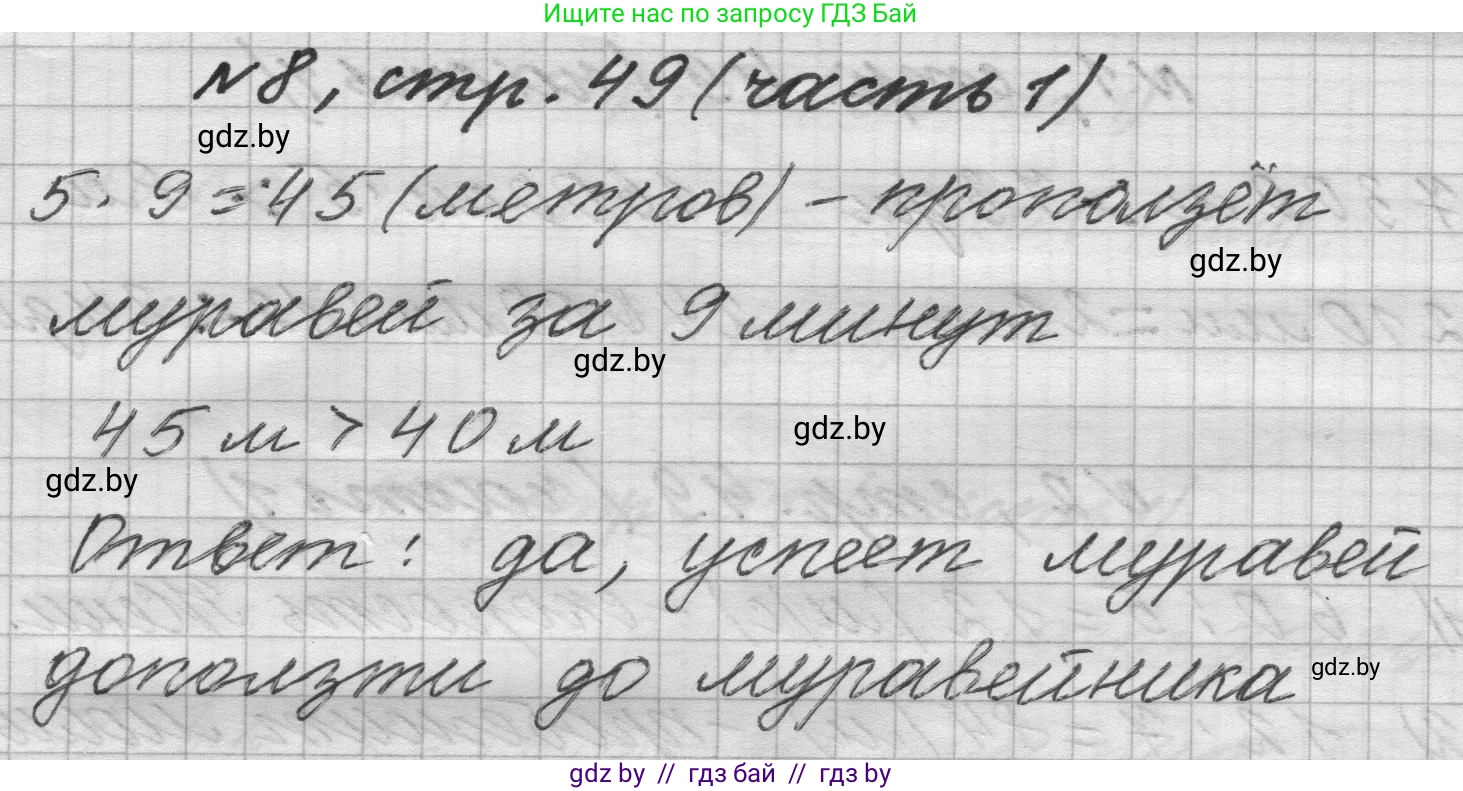 Ищите нас по запросу ГДЗ Бай
№8, стр. 49 (часть 1)
gdz.by
5 · 9 = 45 (метров) – проползёт
gdz.by
муравей за 9 минут
gdz.by
45 м > 40 м
gdz.by
gdz.by
Ответ: да, успеет муравей
доползти до муравейника
gdz.by
gdz by // гдз бай // гдз by